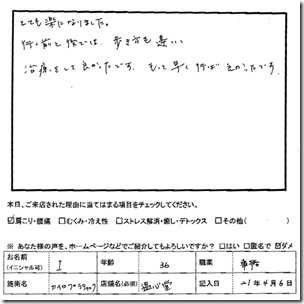 とても楽になりました。
行く前と後では、歩き方も違い
治療をして良かったです。もっと早く行けば良かったです。
本日、ご来店された理由に当てはまる項目をチェックしてください。
☑肩こり・腰痛 □むくみ・冷え性 □ストレス解消・癒し・デトックス □その他( )
※ あなた様の声を、ホームページなどでご紹介してもよろしいですか？ □はい □匿名で ☑ダメ
お名前 (イニシャル可) I 年齢 36 職業
施術名 カイロプラクティック 店舗名(必須) 温心堂 記入日 21年4月6日